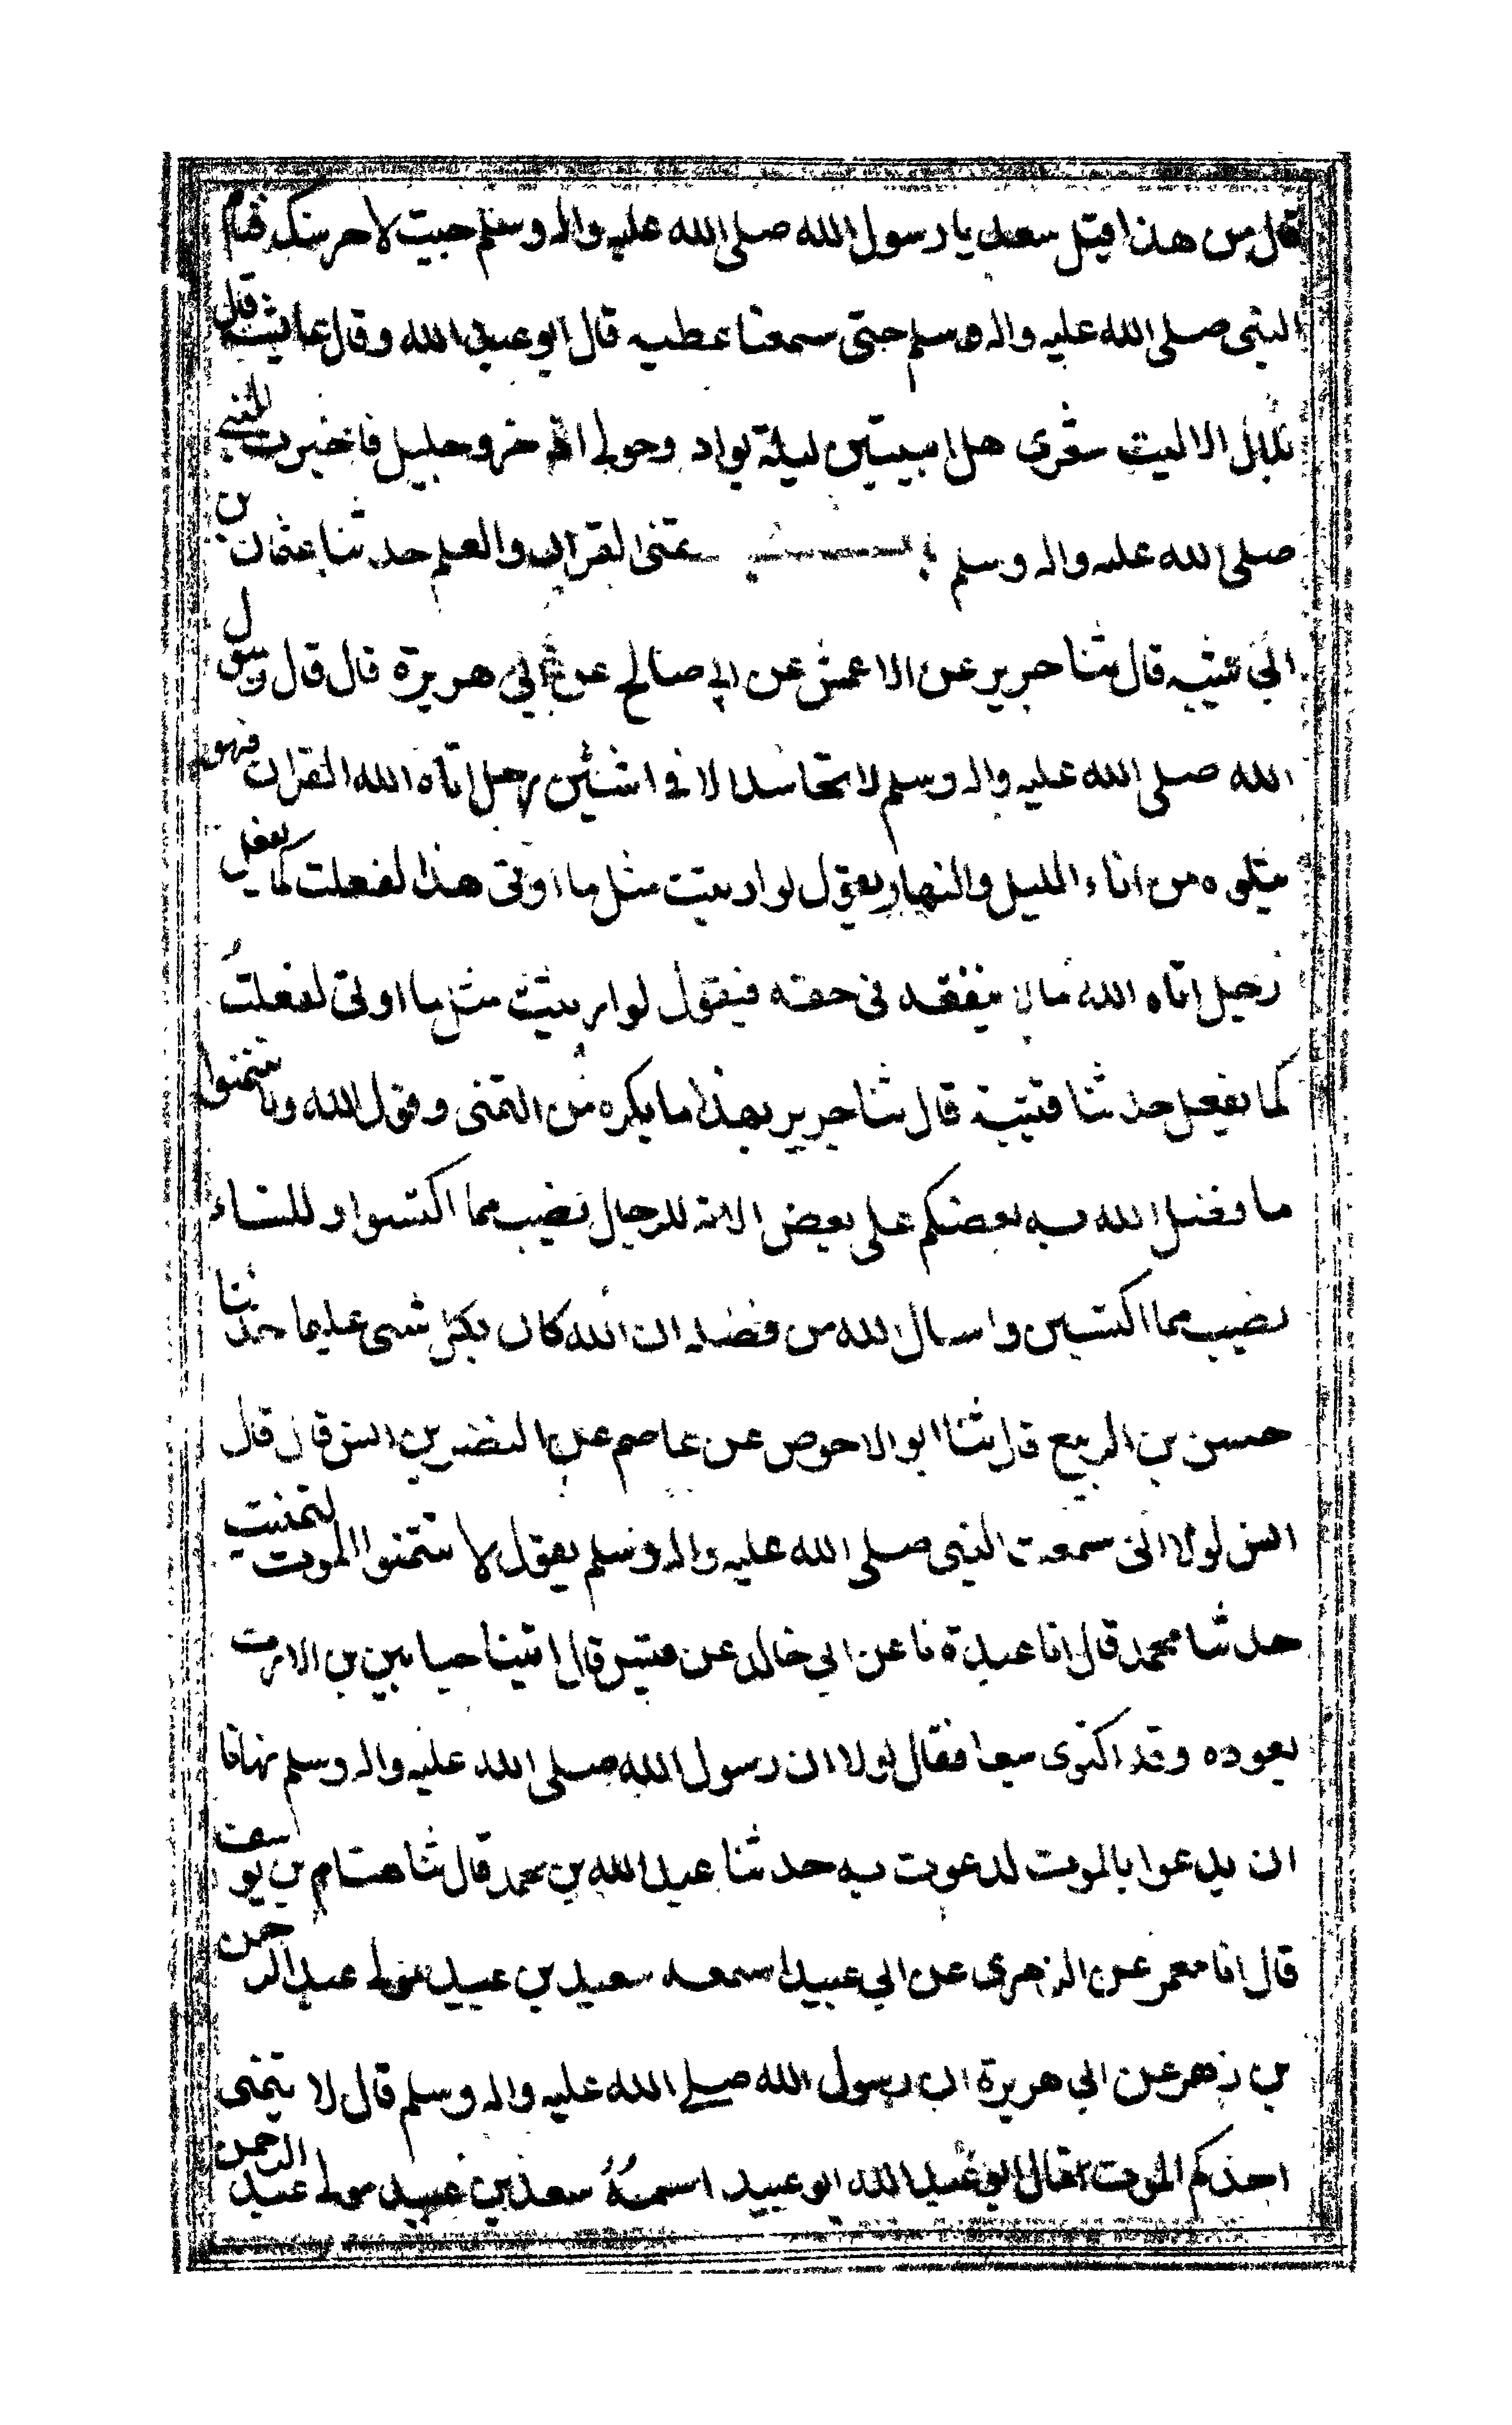 قال من هذا قيل سعد يا رسول الله صلى الله عليه واله وسلم جيت لاحرسك فنام
النبى صلى الله عليه واله وسلم حتى سمعنا غطيه قال ابو عبد الله وقال عايشة قال
بلال الا ليت شعرى هل ابيتن ليلة بواد وحولى اذخر وجليل فاخبرت للنبى
صلى الله عليه واله وسلم تمنى القران والعلم حدثنا عثمان بن
ابى شيبه قال ثنا جرير عن الاعمش عن ابى صالح عن ابى هريرة قال قال رسول
الله صلى الله عليه واله وسلم لا تحاسد الا فى اثنتين رجل اتاه الله القران فهو
يتلوه من اناء الليل والنهار يقول لو اوتيت مثل ما اوتى هذا لفعلت كما يفعل
رجل اتاه الله مالا ينفقه فى حقه فيقول لو اوتيت مثل ما اوتى لفعلت
كما يفعل حدثنا قتيبة قال ثنا جرير بهذا ما يكره من التمنى وقول الله ولا تتمنوا
ما فضل الله به بعضكم على بعض الاية للرجال نصيب مما اكتسبوا وللنساء
نصيب مما اكتسبن واسال الله من فضله ان الله كان بكل شى عليما حدثنا
حسن بن الربيع قال ثنا ابو الاحوص عن عاصم عن النضر بن انس قال قال
انس لولا انى سمعت النبى صلى الله عليه واله وسلم يقول لا تتمنوا الموت لتمنيت
حدثنا محمد قال انا عبدة نا عن ابى خالد عن قيس قال اتينا خباب بن الارت
نعوده وقد اكتوى سبعا فقال لولا ان رسول الله صلى الله عليه واله وسلم نهانا
ان يدعوا بالموت لدعوت به حدثنا عبد الله بن محمد قال ثنا هشام بن يوسف
قال انا معمر عن الزهرى عن ابى عبيد اسمعه سعيد بن عبيد مولى عبد الرحمن
بن زهر عن ابى هريرة ان رسول الله صلى الله عليه واله وسلم قال لا يتمنى
احدكم الموت قال ابو عبد الله ابو عبيد اسمه سعد بن عبيد مولى عبد الرحمن